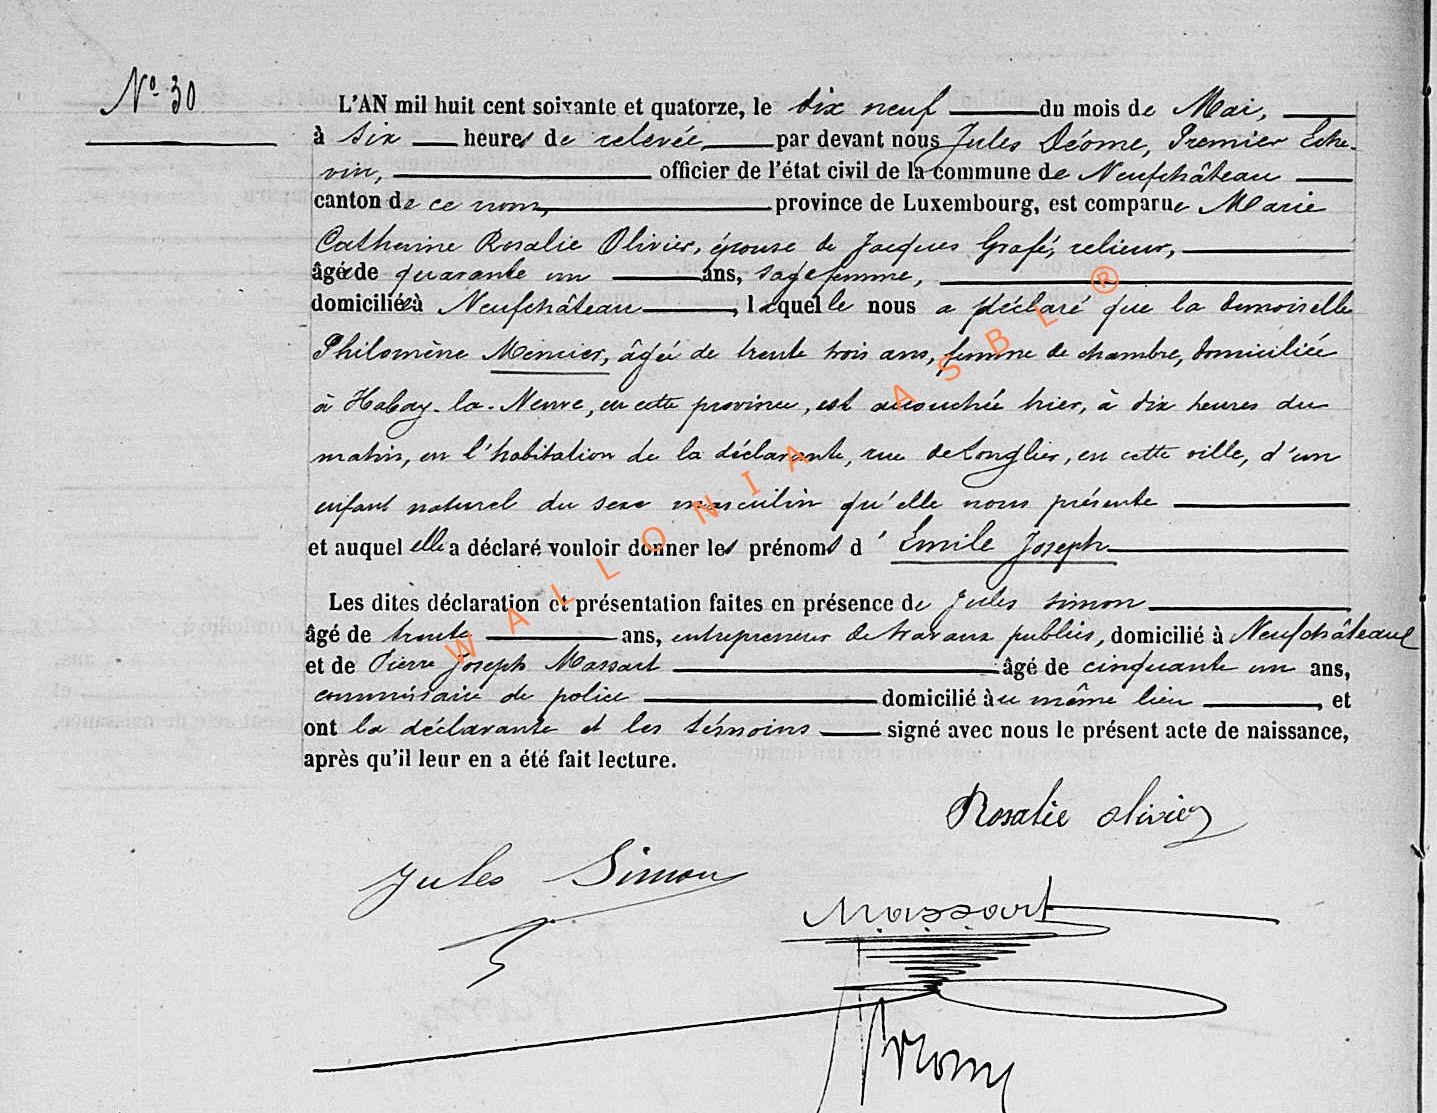 N° 30
L'AN mil huit cent soixante et quatorze, le dix neuf du mois de Mai,
à six heures de relevée, par devant nous Jules Déome, Premier Eche-
vin, officier de l'état civil de la commune de Neufchâteau
canton de ce nom, province de Luxembourg, est comparue Marie
Catherine Rosalie Olivier, épouse de Jacques Grafé, relieur,
âgée de quarante un ans, sage femme,
domiciliée à Neufchâteau, laquelle nous a déclaré que la demoiselle
Philomène Mercier, âgée de trente trois ans, femme de chambre, domiciliée
à Habay-la-Neuve, en cette province, est accouchée hier, à dix heures du
matin, en l'habitation de la déclarante, rue de Longlier, en cette ville, d'un
enfant naturel du sexe masculin qu'elle nous présente
et auquel elle a déclaré vouloir donner les prénoms d'Emile Joseph
Les dites déclaration et présentation faites en présence de Jules Simon
âgé de trente ans, entrepreneur de travaux publics, domicilié à Neufchâteau
et de Pierre Joseph Massart âgé de cinquante un ans,
commissaire de police domicilié au même lieu, et
ont la déclarante et les témoins signé avec nous le présent acte de naissance,
après qu'il leur en a été fait lecture.
Rosalie Olivier
Jules Simon
Massart
WALLONIA ASBL ®